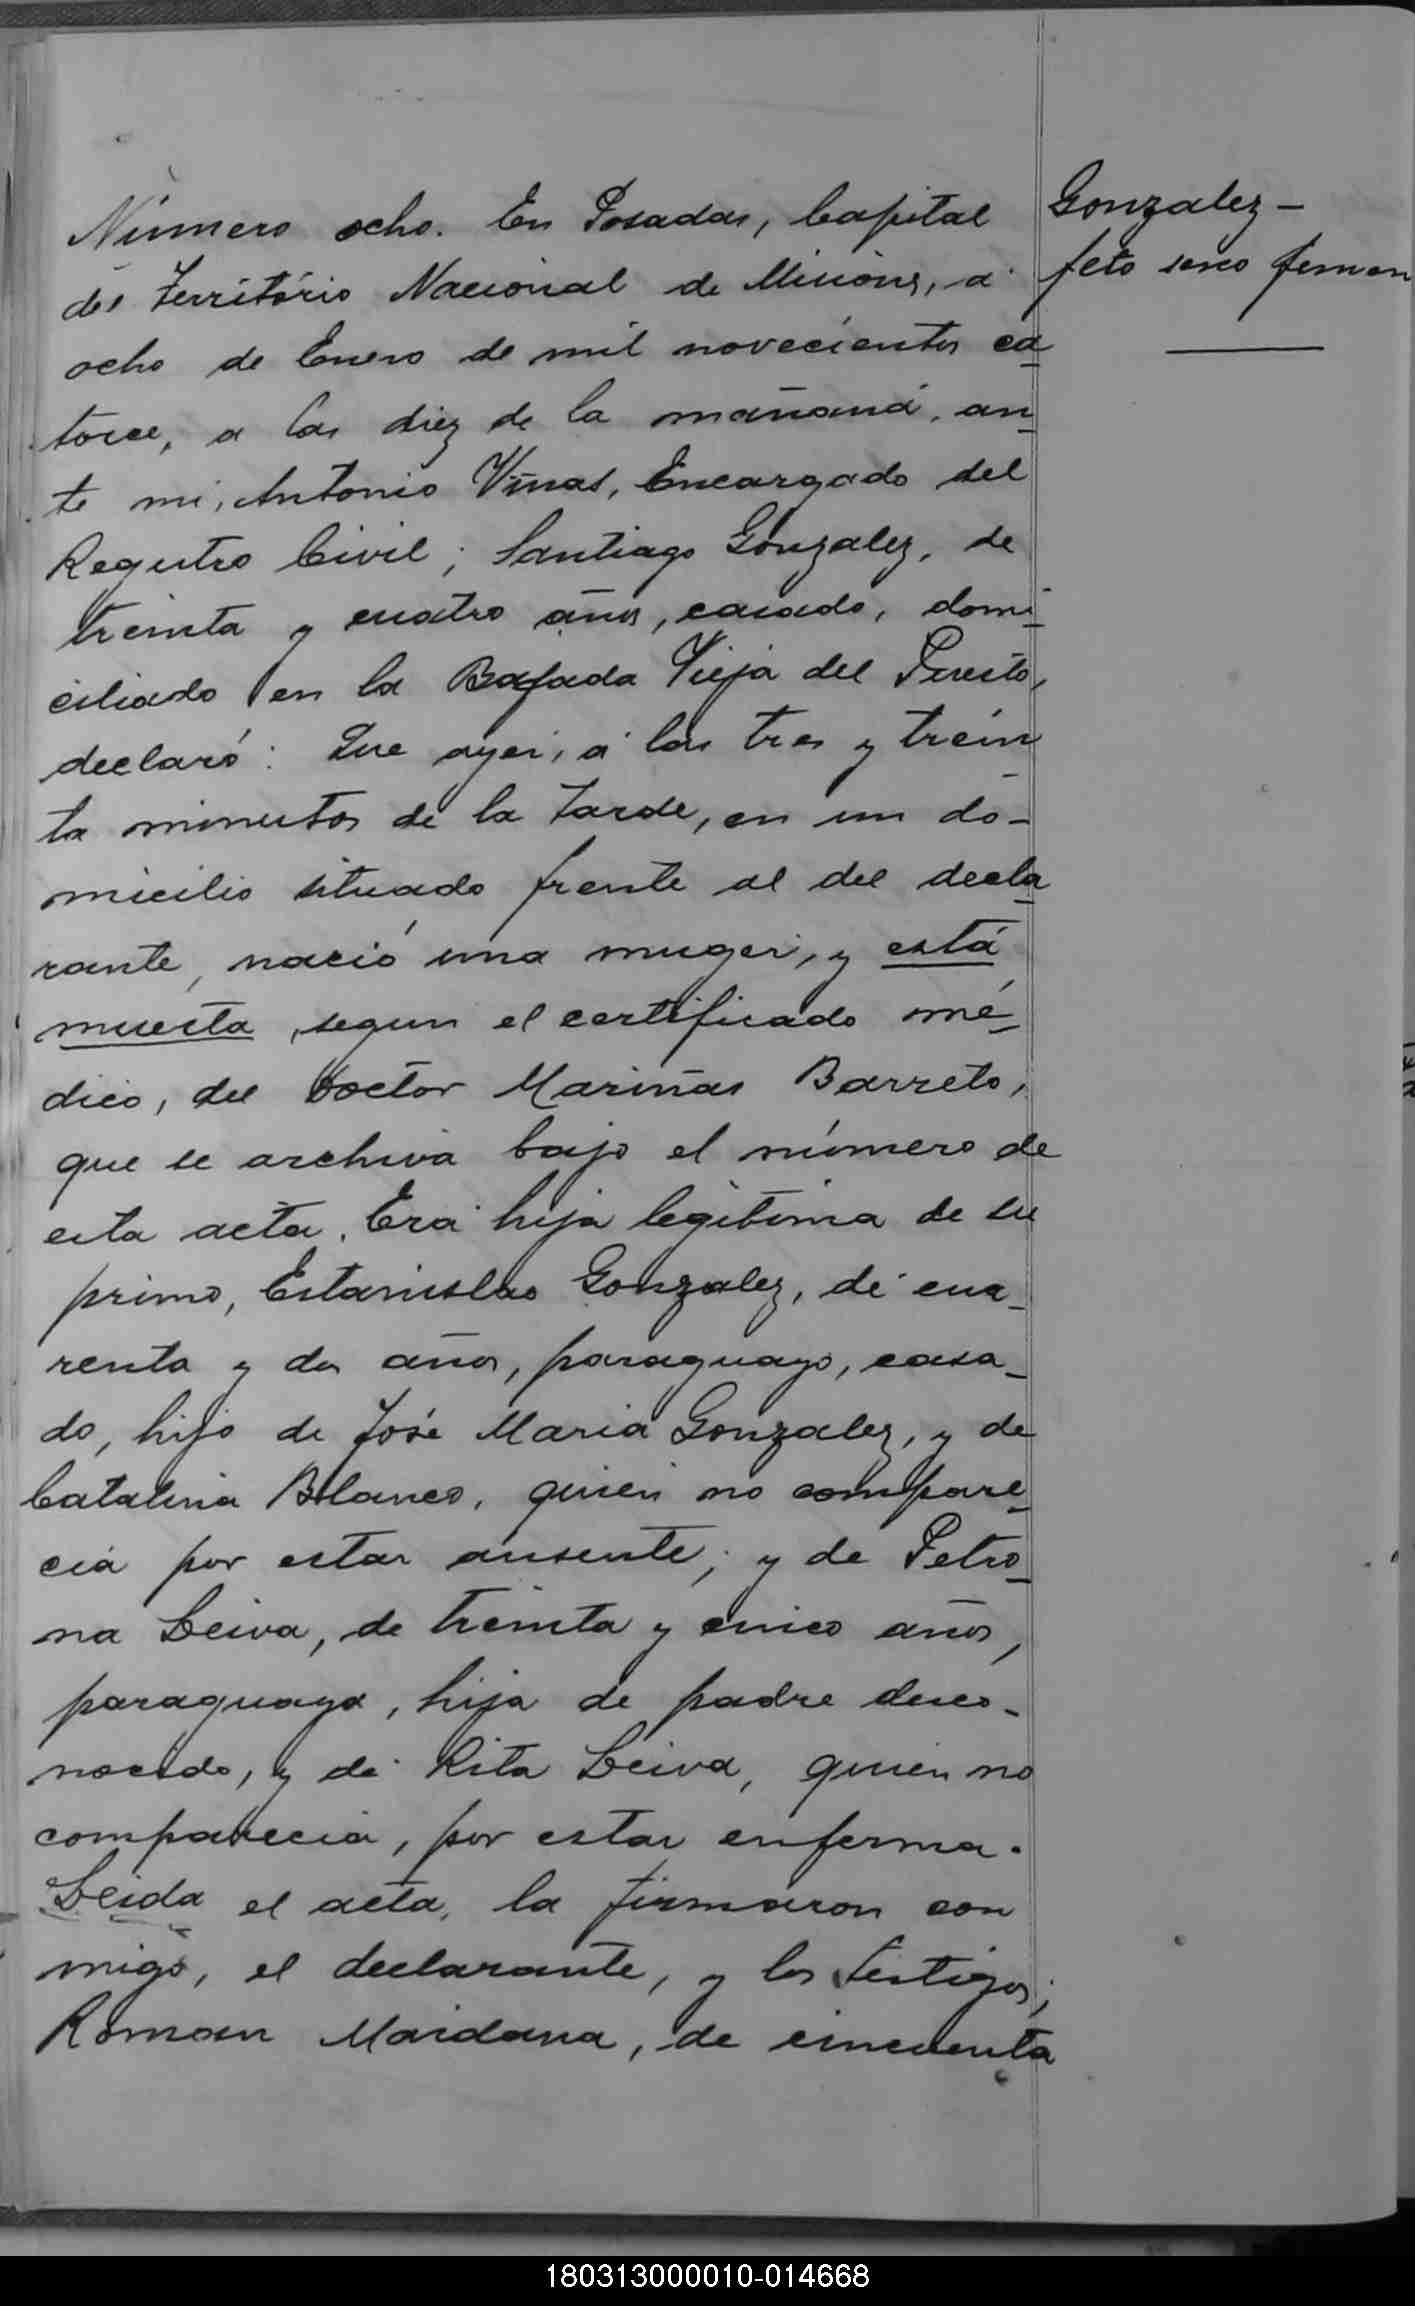 Número ocho. En Posadas, Capital
del Território Nacional de Misiones, á
ocho de Enero de mil novecientos ca_
torce, a las diez de la mañana, an_
te mi, Antonio Viñas, Encargado del
Registro Civil; Santiago Gonzalez, de
treinta y cuatro años, casado, domi_
ciliado en la Bajada Vieja del Puerto,
declaró: Que ayer, á las tres y trein_
ta minutos de la tarde, en un do-
micilio situado frente al del decla_
rante, nació una muger, y está
muerta, segun el certificado mé_
dico, del Doctor Mariñas Barreto,
que se archiva bajo el número de
esta acta. Era hija legítima de su
primo, Estanislao Gonzalez, de cua_
renta y dos años, paraguayo, casa_
do, hijo de José Maria Gonzalez, y de
Catalina Blanco, quien no compare_
cia por estar ausente; y de Petro_
na Leiva, de treinta y cinco años,
paraguaya, hija de padre desco-
nocido, y de Rita Leiva, quien no
comparecia, por estar enferma.
Leida el acta, la firmaron con
migo, el declarante, y los testigos;
Roman Maidana, de cincuenta
Gonzalez -
feto sexo femen
180313000010-014668